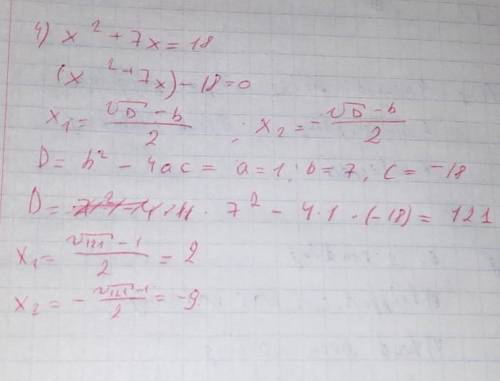 4) x² + 7x = 18
(x² + 7x) - 18 = 0
x₁ = (√D - b)/2 ; x₂ = - (√D - b)/2
D = b² - 4ac = a = 1 ; b = 7 ; c = -18
D = 7² - 4 · 1 · (-18) = 121
x₁ = (√121 - 1)/2 = 2
x₂ = - (√121 - 1)/2 = -9